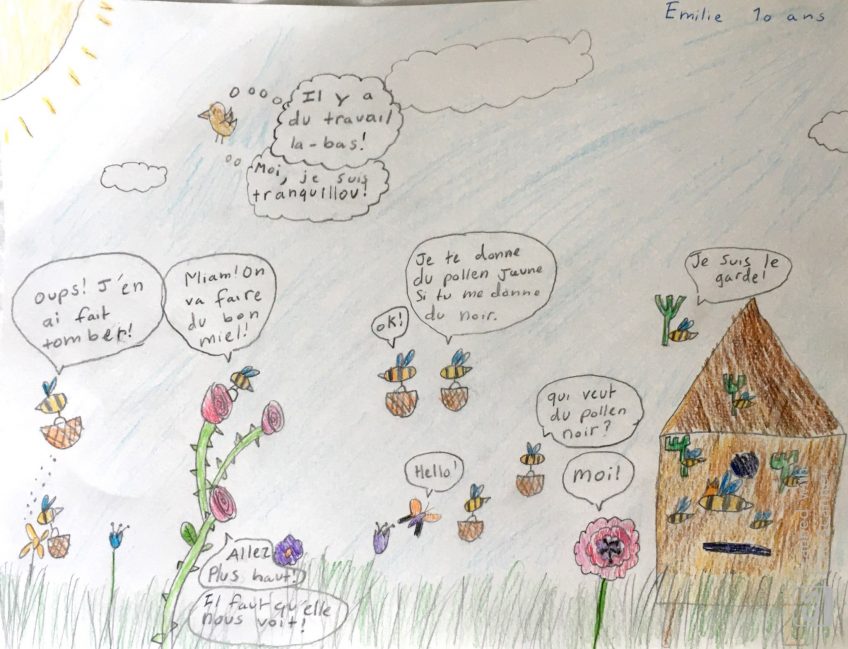 Emilie 10 ans
Il y a
du travail
la-bas!
Moi, je suis
tranquillou!
Oups! J'en
ai fait
tomber!
Miam! On
va faire
du bon
miel!
OK!
Je te donne
du pollen jaune
Si tu me donne
du noir.
Je suis le
garde!
qui veut
du pollen
noir?
Hello!
moi!
Allez
Plus haut!
Il faut qu'elle
nous voit!